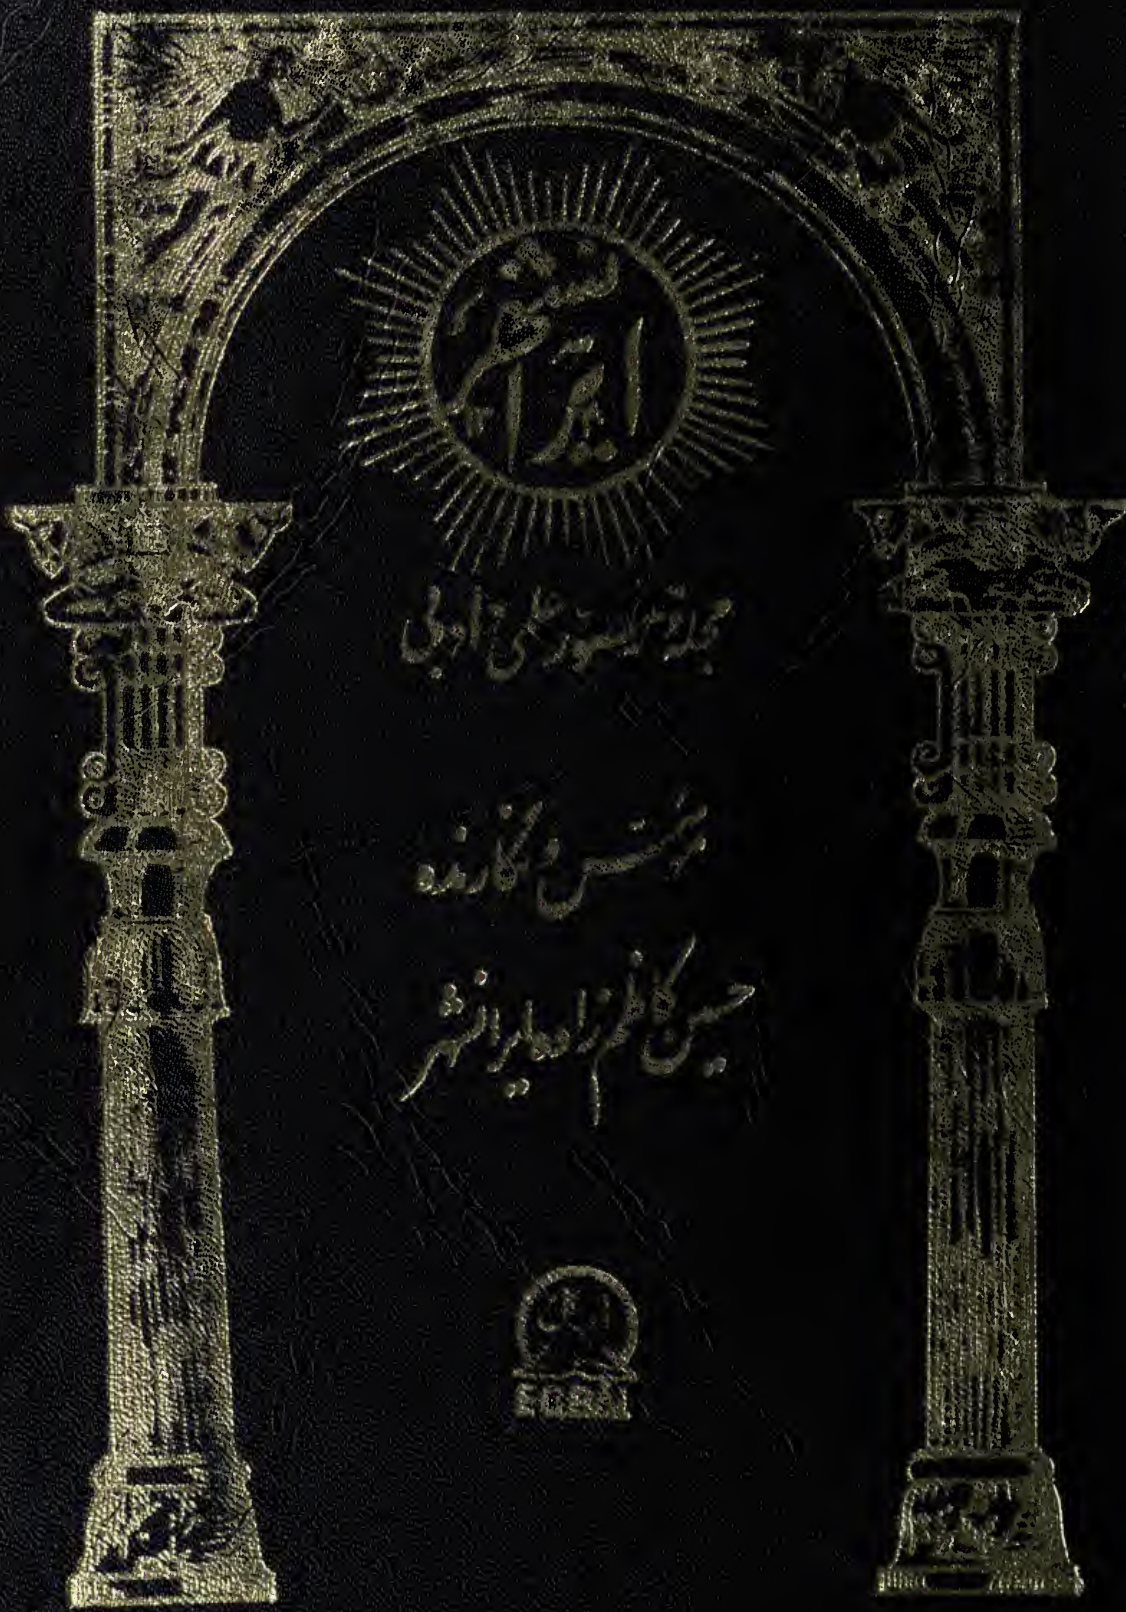 ایرانشهر
مجلهٔ مصور علمی و ادبی
مؤسس و نگارنده
حسین کاظم زاده ایرانشهر
اقبال
EGBAL